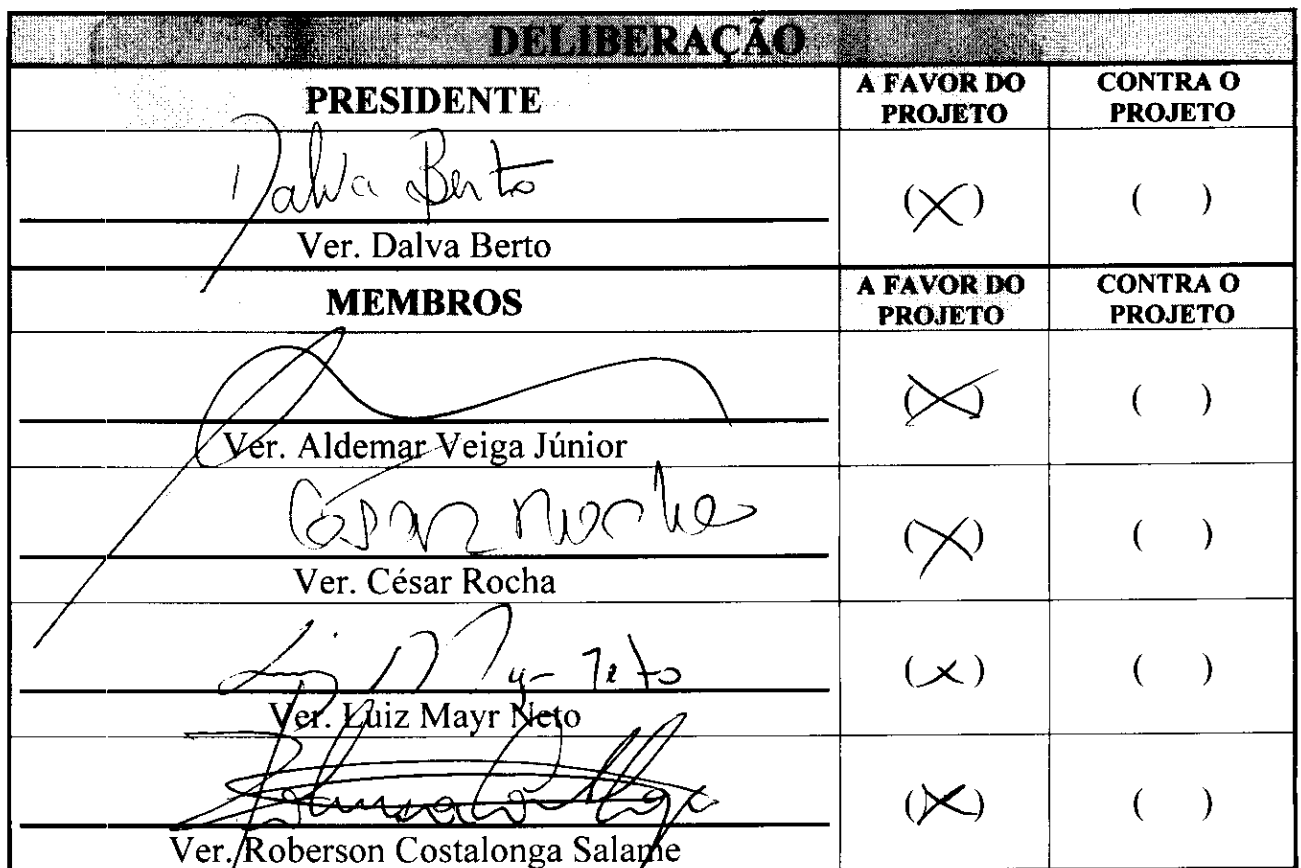 DELIBERAÇÃO
PRESIDENTE
A FAVOR DO PROJETO
CONTRA O PROJETO
Dalva Berto
(X)
( )
Ver. Dalva Berto
MEMBROS
A FAVOR DO PROJETO
CONTRA O PROJETO
(X)
( )
Ver. Aldemar Veiga Júnior
César Rocha
(X)
( )
Ver. César Rocha
(X)
( )
Ver. Luiz Mayr Neto
(X)
( )
Ver. Roberson Costalonga Salame